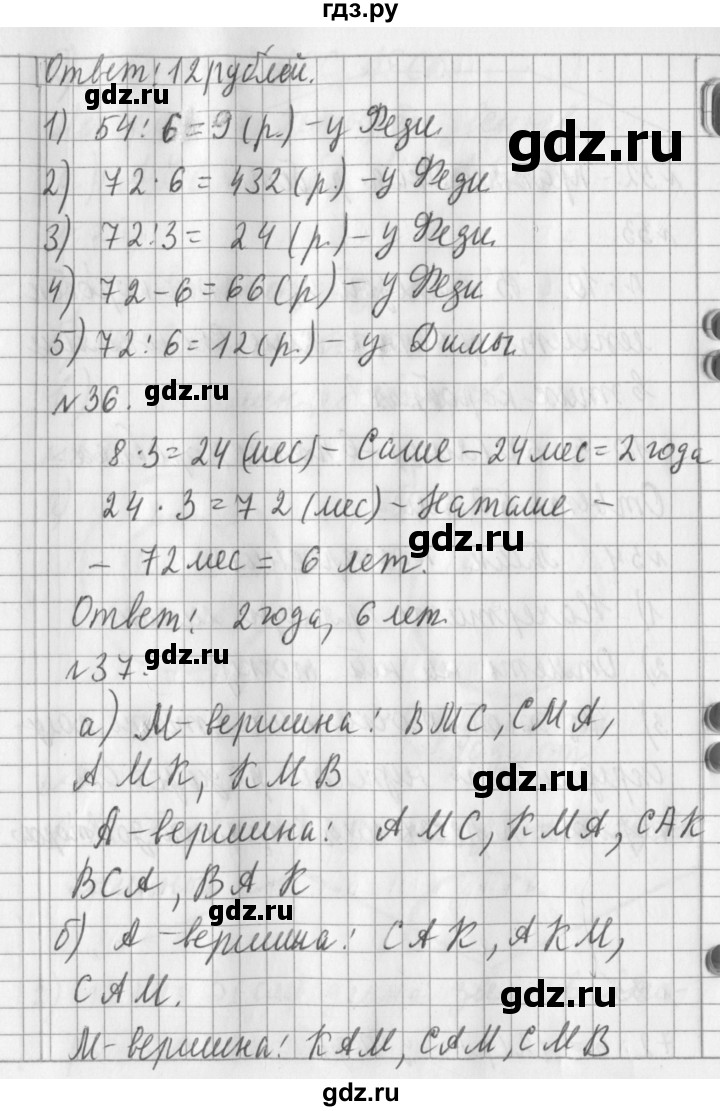 гдз.ру
Ответ: 12 рублей.
gdz.ru
1) 54 : 6 = 9 (р.) – у Феди.
gdz.ru
2) 72 · 6 = 432 (р.) – у Феди
3) 72 : 3 = 24 (р.) – у Феди.
4) 72 – 6 = 66 (р) – у Феди
5) 72 : 6 = 12 (р.) – у Димы.
gdz.ru
№36.
8 · 3 = 24 (мес) – Саше – 24 мес = 2 года
24 · 3 = 72 (мес) – Наташе –
gdz.ru
– 72 мес = 6 лет.
Ответ: 2 года, 6 лет.
№37.
а) М – вершина: ВМС, СМА,
АМК, КМВ
gdz.ru
А – вершина: АМС, КМА, САК
ВСА, ВАК
gdz.ru
б) А – вершина: САК, АКМ,
САМ.
gdz.ru
М – вершина: КАМ, САМ, СМВ
gdz.ru